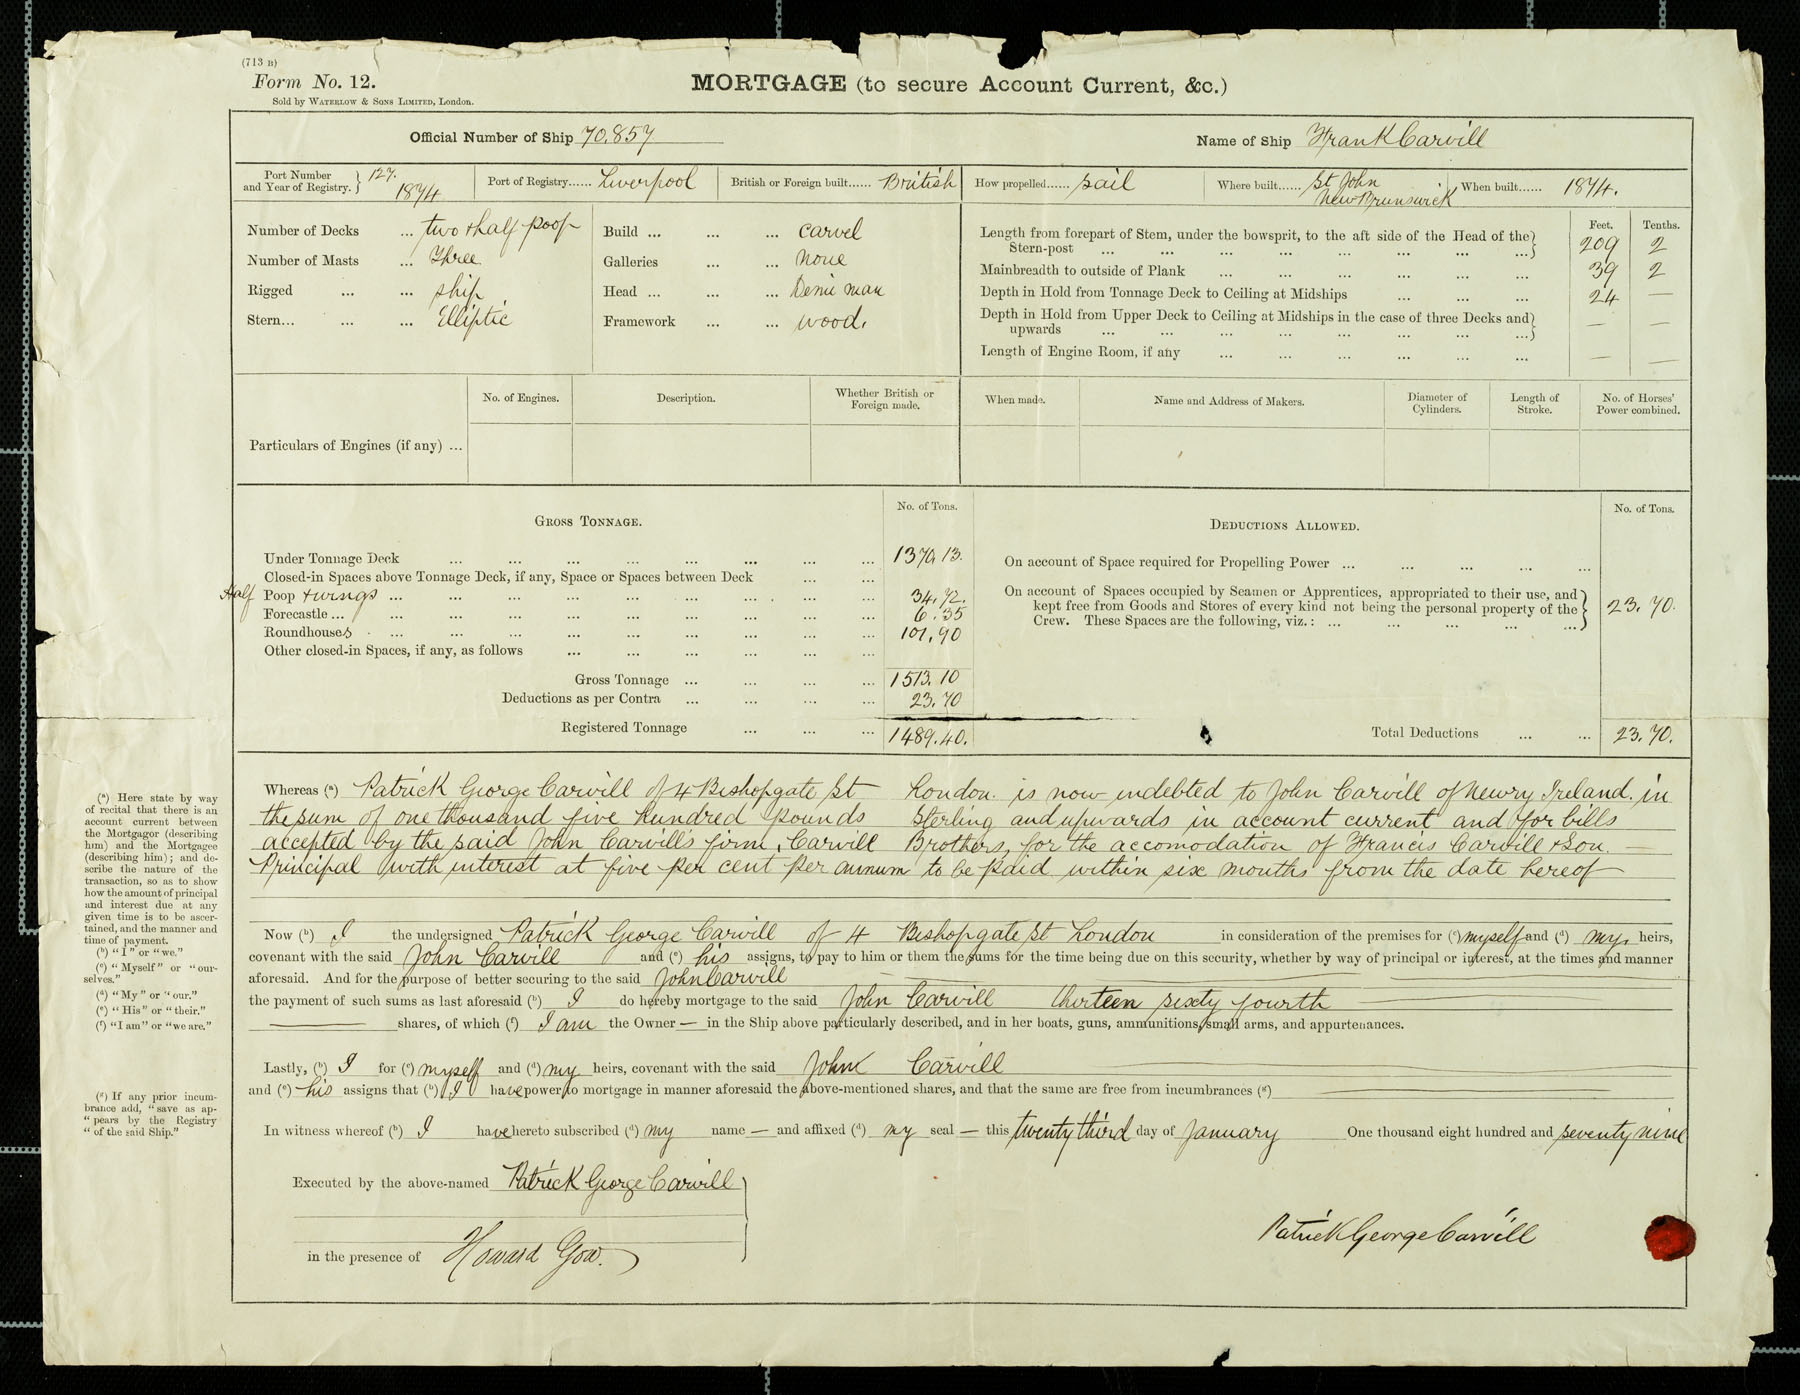 (713 B)
Form No. 12.
Sold by WATERLOW & SONS LIMITED, London.
MORTGAGE (to secure Account Current, &c.)
Official Number of Ship 70.857
Name of Ship Frank Carvill
Port Number and Year of Registry. } 127. 1874
Port of Registry...... Liverpool
British or Foreign built...... British
How propelled...... Sail
Where built...... St John New Brunswick
When built...... 1874.
Number of Decks ... two & half poop
Number of Masts ... Three
Rigged ... ... ship
Stern... ... ... Elliptic
Build ... ... ... Carvel
Galleries ... ... None
Head ... ... ... Demi man
Framework ... ... wood.
Feet. Tenths.
Length from forepart of Stem, under the bowsprit, to the aft side of the Head of the
Stern-post ... ... ... ... ... ... ... ...} 209 2
Mainbreadth to outside of Plank ... ... ... ... ... ... 39 2
Depth in Hold from Tonnage Deck to Ceiling at Midships ... ... ... 24 —
Depth in Hold from Upper Deck to Ceiling at Midships in the case of three Decks and
upwards ... ... ... ... ... ... ... ...} — —
Length of Engine Room, if any ... ... ... ... ... ... — —
Particulars of Engines (if any) ...
No. of Engines.
Description.
Whether British or Foreign made.
When made.
Name and Address of Makers.
Diameter of Cylinders.
Length of Stroke.
No. of Horses' Power combined.
GROSS TONNAGE.
No. of Tons.
Under Tonnage Deck ... ... ... ... ... ... ... ... 1370.13.
Closed-in Spaces above Tonnage Deck, if any, Space or Spaces between Deck ... ...
Half Poop & wings ... ... ... ... ... ... ... ... ... 34.72.
Forecastle ... ... ... ... ... ... ... ... ... ... 6.35
Roundhouses ... ... ... ... ... ... ... ... ... 101.90
Other closed-in Spaces, if any, as follows ... ... ... ... ... ...
Gross Tonnage ... ... ... ... 1513.10
Deductions as per Contra ... ... ... ... 23.70
Registered Tonnage ... ... ... 1489.40.
DEDUCTIONS ALLOWED.
No. of Tons.
On account of Space required for Propelling Power ... ... ... ... ...
On account of Spaces occupied by Seamen or Apprentices, appropriated to their use, and
kept free from Goods and Stores of every kind not being the personal property of the
Crew. These Spaces are the following, viz.: ... ... ... ... ...} 23.70.
Total Deductions ... ... 23.70.
Whereas (a) Patrick George Carvill of 4 Bishopgate St London is now indebted to John Carvill of Newry Ireland. in
the sum of one thousand five hundred pounds Sterling and upwards in account current and for bills
accepted by the said John Carvill's firm, Carvill Brothers, for the accomodation of Francis Carvill & Son. —
Principal with interest at five per cent per annum to be paid within six months from the date hereof
Now (b) I the undersigned Patrick George Carvill of 4 Bishopgate St London in consideration of the premises for (c) myself and (d) my heirs,
covenant with the said John Carvill and (e) his assigns, to pay to him or them the sums for the time being due on this security, whether by way of principal or interest, at the times and manner
aforesaid. And for the purpose of better securing to the said John Carvill
the payment of such sums as last aforesaid (b) I do hereby mortgage to the said John Carvill thirteen sixty fourth
shares, of which (f) I am the Owner — in the Ship above particularly described, and in her boats, guns, ammunitions, small arms, and appurtenances.
Lastly, (b) I for (c) myself and (d) my heirs, covenant with the said John Carvill
and (e) his assigns that (b) I have power to mortgage in manner aforesaid the above-mentioned shares, and that the same are free from incumbrances (g)
In witness whereof (b) I have hereto subscribed (d) my name — and affixed (d) my seal — this twenty third day of January One thousand eight hundred and seventy nine
Executed by the above-named Patrick George Carvill
in the presence of Howard Gow.
Patrick George Carvill
(a) Here state by way
of recital that there is an
account current between
the Mortgagor (describing
him) and the Mortgagee
(describing him); and de-
scribe the nature of the
transaction, so as to show
how the amount of principal
and interest due at any
given time is to be ascer-
tained, and the manner and
time of payment.
(b) "I" or "we."
(c) "Myself" or "our-
selves."
(d) "My" or "our."
(e) "His" or "their."
(f) "I am" or "we are."
(g) If any prior incum-
brance add, "save as ap-
"pears by the Registry
"of the said Ship."